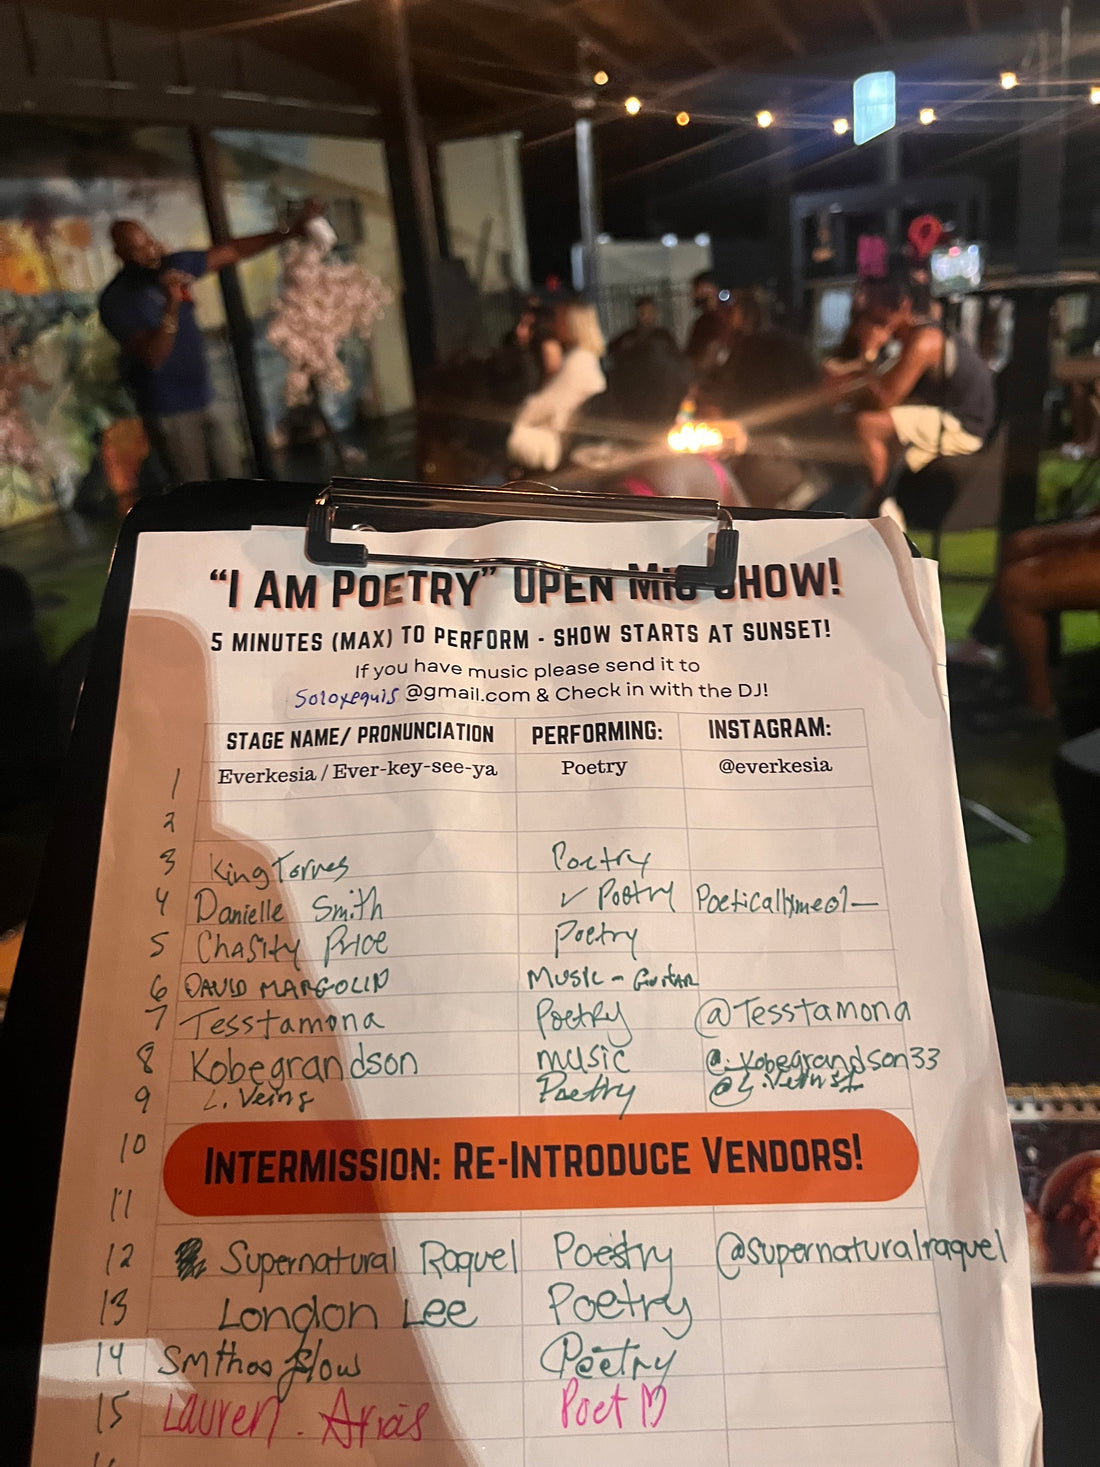 “I AM POETRY” OPEN MIC SHOW!
5 MINUTES (MAX) TO PERFORM - SHOW STARTS AT SUNSET!
If you have music please send it to
Soloxequis @gmail.com & Check in with the DJ!
STAGE NAME/ PRONUNCIATION PERFORMING: INSTAGRAM:
1 Everkesia / Ever-key-see-ya Poetry @everkesia
2
3 King Torres Poetry
4 Danielle Smith ✓ Poetry
5 Chasity Price Poetry
6 DAVID MARGOLIN MUSIC - GUITAR
7 Tesstamona Poetry @Tesstamona
8 Kobegrandson music @.Kobegrandson33
9 L. Veins Poetry
10
INTERMISSION: RE-INTRODUCE VENDORS!
11
12 Supernatural Raquel Poetry @supernaturalraquel
13 London Lee Poetry
14 Smthoo flow Poetry
15 Lauren. Arias Poet ♡